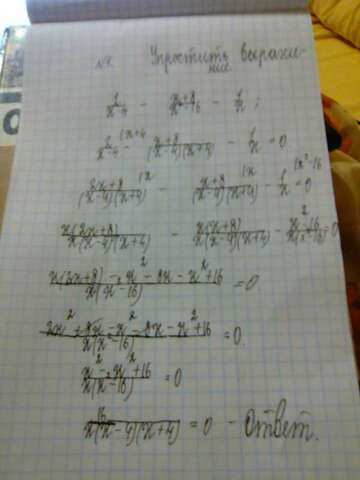 №4. Упростить выраже-
ние
2/(x-4) - (x+8)/(x²-16) - 1/x ;
2/(x-4) |x+4 - (x+8)/((x-4)(x+4)) - 1/x = 0
(2x+8)/((x-4)(x+4)) |x - (x+8)/((x-4)(x+4)) |x - 1/x |x²-16 = 0
x(2x+8)/(x(x-4)(x+4)) - x(x+8)/(x(x-4)(x+4)) - (x²-16)/(x(x²-16)) = 0
(x(2x+8) - x² - 8x - x² + 16)/(x(x²-16)) = 0
(2x² + 8x - x² - 8x - x² + 16)/(x(x²-16)) = 0.
(x² - x² + 16)/(x(x²-16)) = 0
16/(x(x-4)(x+4)) = 0 - Ответ.